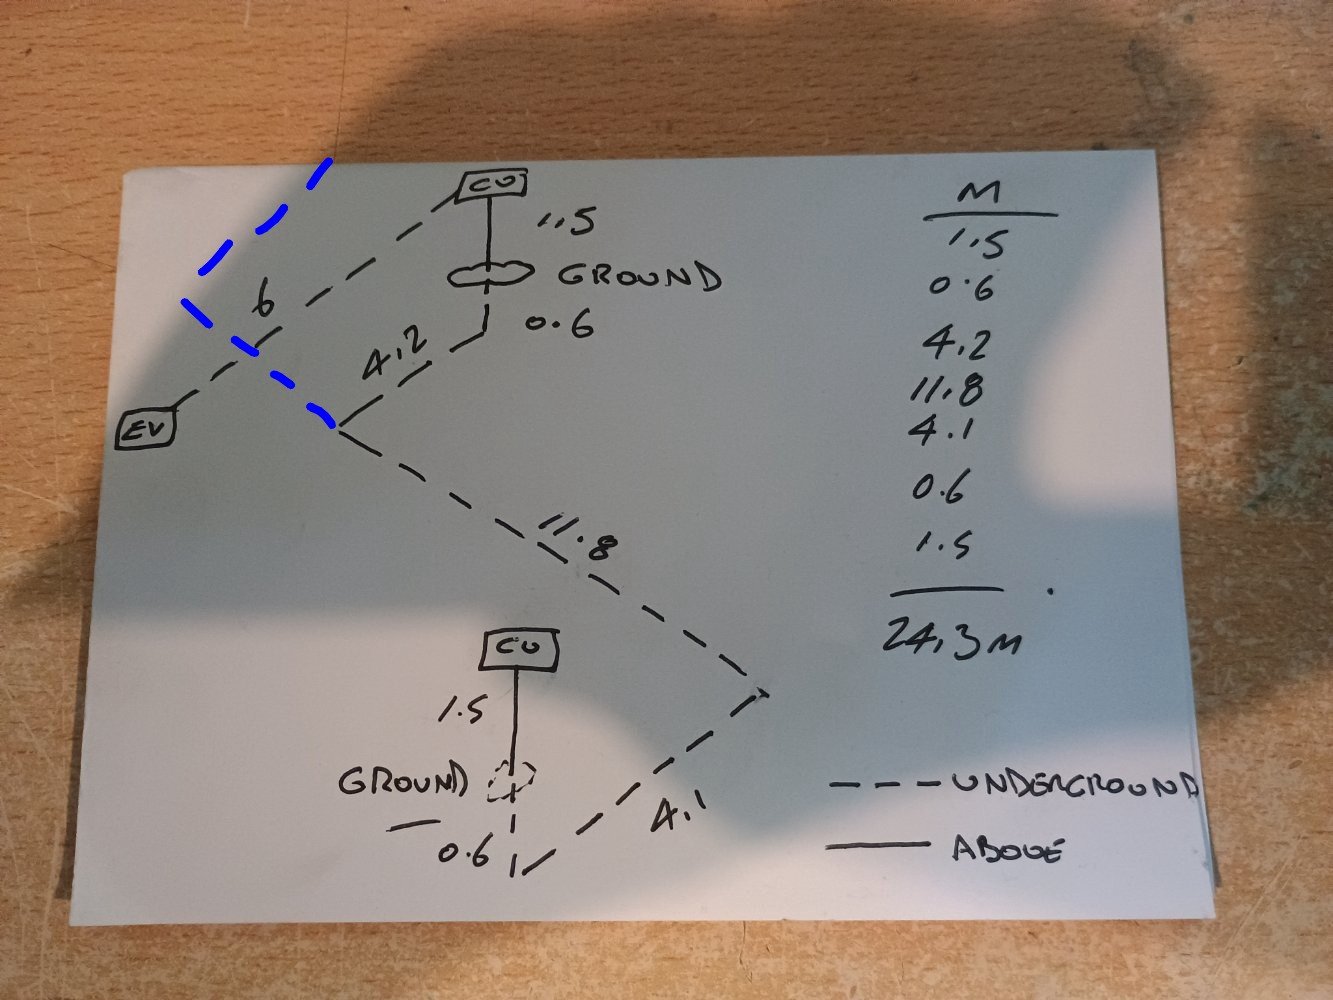 CU
1.5
GROUND
0.6
6
4.2
EV
11.8
CU
1.5
GROUND
0.6
4.1
M
1.5
0.6
4.2
11.8
4.1
0.6
1.5
24.3M
UNDERGROUND
ABOVE